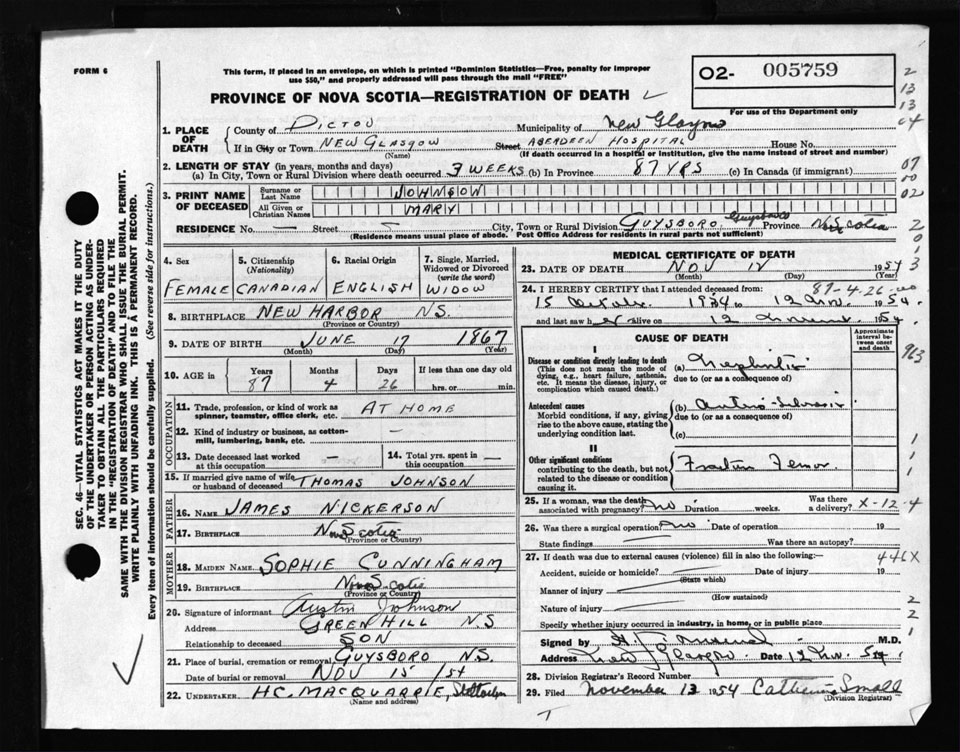 FORM 6
This form, if placed in an envelope, on which is printed "Dominion Statistics—Free, penalty for improper
use $50," and properly addressed will pass through the mail "FREE"
O2- 005759
For use of the Department only
PROVINCE OF NOVA SCOTIA—REGISTRATION OF DEATH
1. PLACE OF DEATH
County of PICTOU Municipality of New Glasgow
If in City or Town NEW GLASGOW Street ABERDEEN HOSPITAL House No.
(Name) (If death occurred in a hospital or institution, give the name instead of street and number)
2. LENGTH OF STAY (in years, months and days)
(a) In City, Town or Rural Division where death occurred 3 WEEKS (b) In Province 87 YRS (c) In Canada (if immigrant)
3. PRINT NAME OF DECEASED
Surname or Last Name JOHNSON
All Given or Christian Names MARY
RESIDENCE No. — Street City, Town or Rural Division GUYSBORO, Guysboro Province N. Scotia
(Residence means usual place of abode. Post Office Address for residents in rural parts not sufficient)
4. Sex FEMALE
5. Citizenship (Nationality) CANADIAN
6. Racial Origin ENGLISH
7. Single, Married, Widowed or Divorced (write the word) WIDOW
8. BIRTHPLACE NEW HARBOR N.S.
(Province or Country)
9. DATE OF BIRTH JUNE 17 1867
(Month) (Day) (Year)
10. AGE in Years 87 Months 4 Days 26 If less than one day old hrs. or min.
OCCUPATION
11. Trade, profession, or kind of work as spinner, teamster, office clerk, etc. AT HOME
12. Kind of industry or business, as cotton-mill, lumbering, bank, etc. —
13. Date deceased last worked at this occupation —
14. Total yrs. spent in this occupation —
15. If married give name of wife or husband of deceased THOMAS JOHNSON
FATHER
16. NAME JAMES NICKERSON
17. BIRTHPLACE Nova Scotia
(Province or Country)
MOTHER
18. MAIDEN NAME SOPHIE CUNNINGHAM
19. BIRTHPLACE Nova Scotia
(Province or Country)
20. Signature of informant Austin Johnson
Address GREEN HILL N.S
Relationship to deceased SON
21. Place of burial, cremation or removal GUYSBORO N.S.
Date of burial or removal NOV 15 /54
22. UNDERTAKER H.C. MACQUARRIE, Stellarton
(Name and address)
MEDICAL CERTIFICATE OF DEATH
23. DATE OF DEATH NOV 12 1954
(Month) (Day) (Year)
87-4-26
24. I HEREBY CERTIFY that I attended deceased from:
15 October 1954 to 12 Nov. 1954.
and last saw her alive on 12 November 1954.
CAUSE OF DEATH
Approximate interval between onset and death
I
Disease or condition directly leading to death
(This does not mean the mode of dying, e.g., heart failure, asthenia, etc. It means the disease, injury, or complication which caused death.)
(a) Nephritis
due to (or as a consequence of)
Antecedent causes
Morbid conditions, if any, giving rise to the above cause, stating the underlying condition last.
(b) Arterio-Sclerosis
due to (or as a consequence of)
(c)
II
Other significant conditions
contributing to the death, but not related to the disease or condition causing it.
Fracture Femor
25. If a woman, was the death associated with pregnancy? No Duration weeks. Was there a delivery? X-12-4
26. Was there a surgical operation? No Date of operation 19
State findings Was there an autopsy?
27. If death was due to external causes (violence) fill in also the following:—
446X
Accident, suicide or homicide? Date of injury 19
(State which)
Manner of injury
(How sustained)
Nature of injury
Specify whether injury occurred in industry, in home, or in public place
Signed by M.D.
Address New Glasgow. Date 12 Nov. 54
28. Division Registrar's Record No.
29. Filed November 13 1954 Catherine Small
(Division Registrar)
SEC. 46—VITAL STATISTICS ACT MAKES IT THE DUTY
OF THE UNDERTAKER OR PERSON ACTING AS UNDER-
TAKER TO OBTAIN ALL THE PARTICULARS REQUIRED
IN THE "REGISTRATION OF DEATH" AND TO FILE THE
SAME WITH THE DIVISION REGISTRAR WHO SHALL ISSUE THE BURIAL PERMIT.
WRITE PLAINLY WITH UNFADING INK. THIS IS A PERMANENT RECORD.
Every item of information should be carefully supplied. (See reverse side for instructions.)
2
13
13
04
07
00
02
2
0
1
3
963
1
1
1
2
2
1